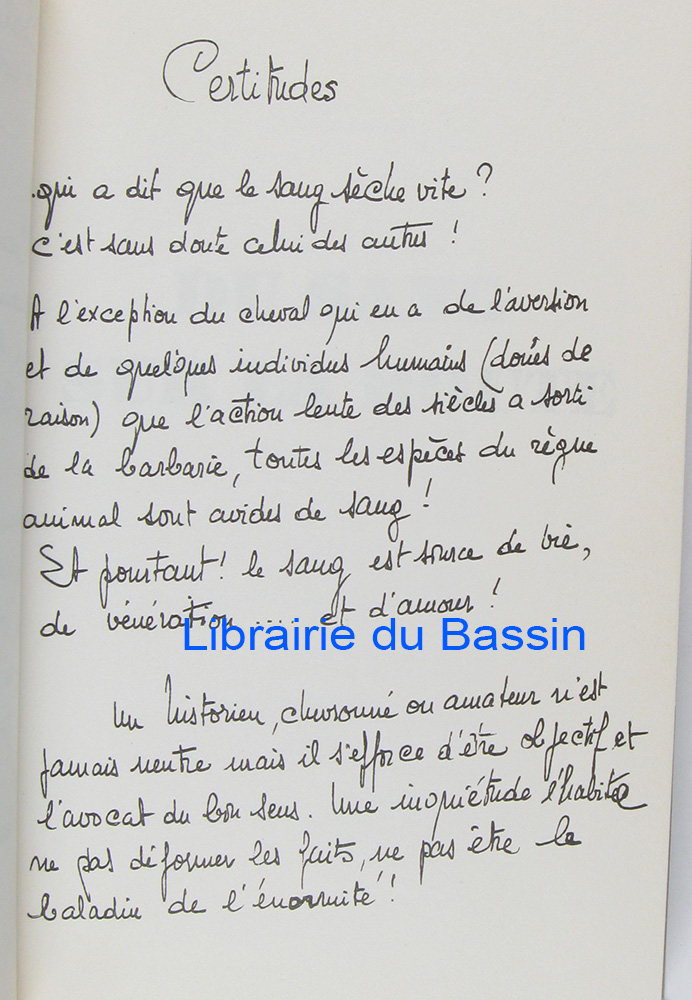 Certitudes
qui a dit que le sang sèche vite ?
c'est sans doute celui des autres !
A l'exception du cheval qui en a de l'aversion
et de quelques individus humains (doués de
raison) que l'action lente des siècles a sorti
de la barbarie, toutes les espèces du règne
animal sont avides de sang !
Et pourtant ! le sang est source de vie,
de vénération .... et d'amour !
Librairie du Bassin
Un historien, chevronné ou amateur n'est
jamais neutre mais il s'efforce d'être objectif et
l'avocat du bon sens. Une inquiétude l'habite
ne pas déformer les faits, ne pas être le
baladin de l'énormité !